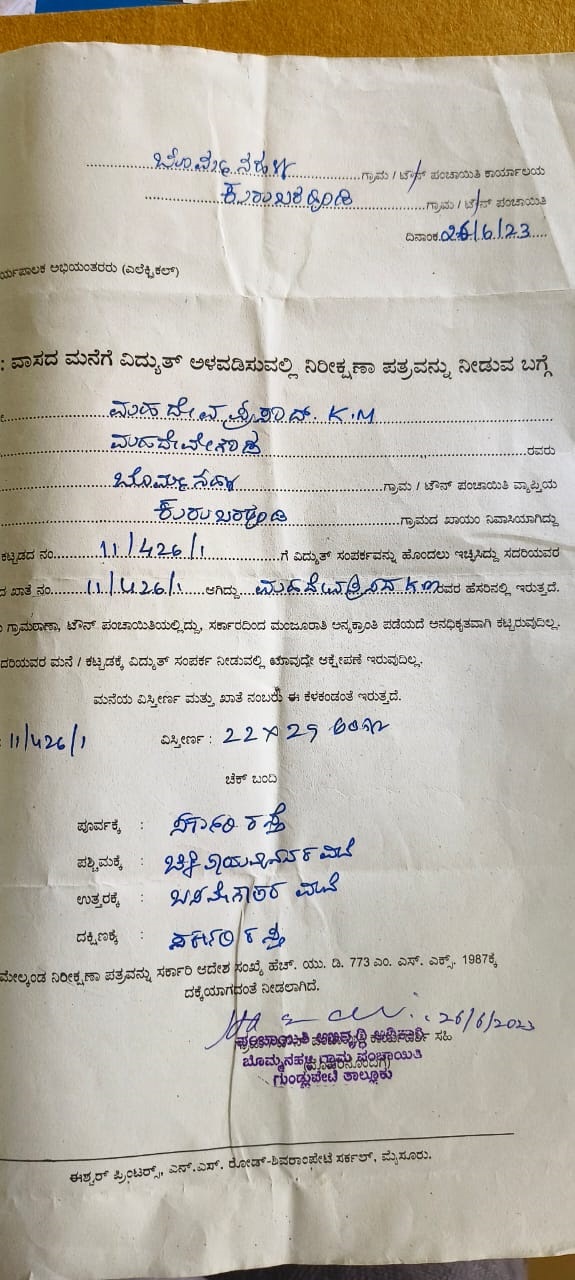 ಬೊಮ್ಮನಹಳ್ಳಿ ಗ್ರಾಮ / ಟೌನ್ ಪಂಚಾಯಿತಿ ಕಾರ್ಯಾಲಯ
ಕುರುಬರಹುಂಡಿ ಗ್ರಾಮ / ಟೌನ್ ಪಂಚಾಯಿತಿ
ದಿನಾಂಕ 26/6/23
ರ್ಯಪಾಲಕ ಅಭಿಯಂತರರು (ಎಲೆಕ್ಟ್ರಿಕಲ್)
: ವಾಸದ ಮನೆಗೆ ವಿದ್ಯುತ್ ಅಳವಡಿಸುವಲ್ಲಿ ನಿರೀಕ್ಷಣಾ ಪತ್ರವನ್ನು ನೀಡುವ ಬಗ್ಗೆ
ಮಹದೇವಪ್ರಸಾದ್. K.M
ಮಹದೇವೇಗೌಡ ರವರು
ಬೊಮ್ಮನಹಳ್ಳಿ ಗ್ರಾಮ / ಟೌನ್ ಪಂಚಾಯಿತಿ ವ್ಯಾಪ್ತಿಯ
ಕುರುಬರಹುಂಡಿ ಗ್ರಾಮದ ಖಾಯಂ ನಿವಾಸಿಯಾಗಿದ್ದು
ಕಟ್ಟಡದ ನಂ. 11/426/1 ಗೆ ವಿದ್ಯುತ್ ಸಂಪರ್ಕವನ್ನು ಹೊಂದಲು ಇಚ್ಛಿಸಿದ್ದು ಸದರಿಯವರ
ದ ಖಾತೆ ನಂ. 11/426/1 ಆಗಿದ್ದು ಮಹದೇವಪ್ರಸಾದ K.M ರವರ ಹೆಸರಿನಲ್ಲಿ ಇರುತ್ತದೆ.
ಗ್ರಾಮಠಾಣಾ, ಟೌನ್ ಪಂಚಾಯಿತಿಯಲ್ಲಿದ್ದು, ಸರ್ಕಾರದಿಂದ ಮಂಜೂರಾತಿ ಅನ್ಯಕ್ರಾಂತಿ ಪಡೆಯದೆ ಅನಧಿಕೃತವಾಗಿ ಕಟ್ಟಿರುವುದಿಲ್ಲ.
ದರಿಯವರ ಮನೆ / ಕಟ್ಟಡಕ್ಕೆ ವಿದ್ಯುತ್ ಸಂಪರ್ಕ ನೀಡುವಲ್ಲಿ ಯಾವುದೇ ಆಕ್ಷೇಪಣೆ ಇರುವುದಿಲ್ಲ.
ಮನೆಯ ವಿಸ್ತೀರ್ಣ ಮತ್ತು ಖಾತೆ ನಂಬರು ಈ ಕೆಳಕಂಡಂತೆ ಇರುತ್ತದೆ.
: 11/426/1 ವಿಸ್ತೀರ್ಣ : 22 x 29
ಚೆಕ್ ಬಂದಿ
ಪೂರ್ವಕ್ಕೆ : ಸರ್ಕಾರಿ ರಸ್ತೆ
ಪಶ್ಚಿಮಕ್ಕೆ : ಮನೆ
ಉತ್ತರಕ್ಕೆ : ಮನೆ
ದಕ್ಷಿಣಕ್ಕೆ : ಸರ್ಕಾರಿ ರಸ್ತೆ
ಮೇಲ್ಕಂಡ ನಿರೀಕ್ಷಣಾ ಪತ್ರವನ್ನು ಸರ್ಕಾರಿ ಆದೇಶ ಸಂಖ್ಯೆ ಹೆಚ್. ಯು. ಡಿ. 773 ಎಂ. ಎಸ್. ಎಕ್ಸ್. 1987ಕ್ಕೆ
ದಕ್ಕೆಯಾಗದಂತೆ ನೀಡಲಾಗಿದೆ.
26/6/2023
ಪಂಚಾಯಿತಿ ಅಭಿವೃದ್ಧಿ ಅಧಿಕಾರಿ ಸಹಿ
ಬೊಮ್ಮನಹಳ್ಳಿ ಗ್ರಾಮ ಪಂಚಾಯಿತಿ
ಗುಂಡ್ಲುಪೇಟೆ ತಾಲ್ಲೂಕು
ಈಶ್ವರ್ ಪ್ರಿಂಟರ್ಸ್, ಎನ್.ಎಸ್. ರೋಡ್-ಶಿವರಾಂಪೇಟೆ ಸರ್ಕಲ್, ಮೈಸೂರು.